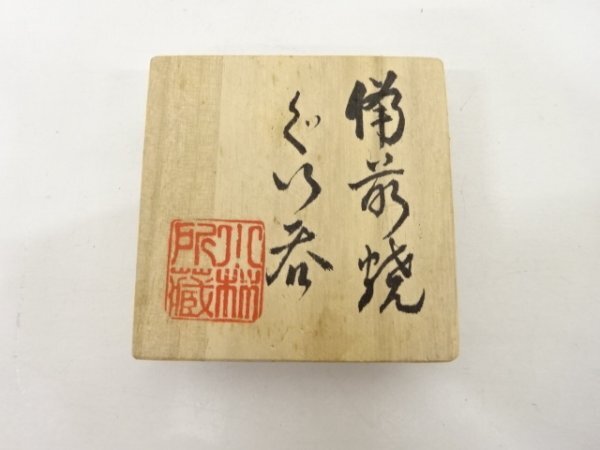 備前焼
ぐい呑
小林
所蔵